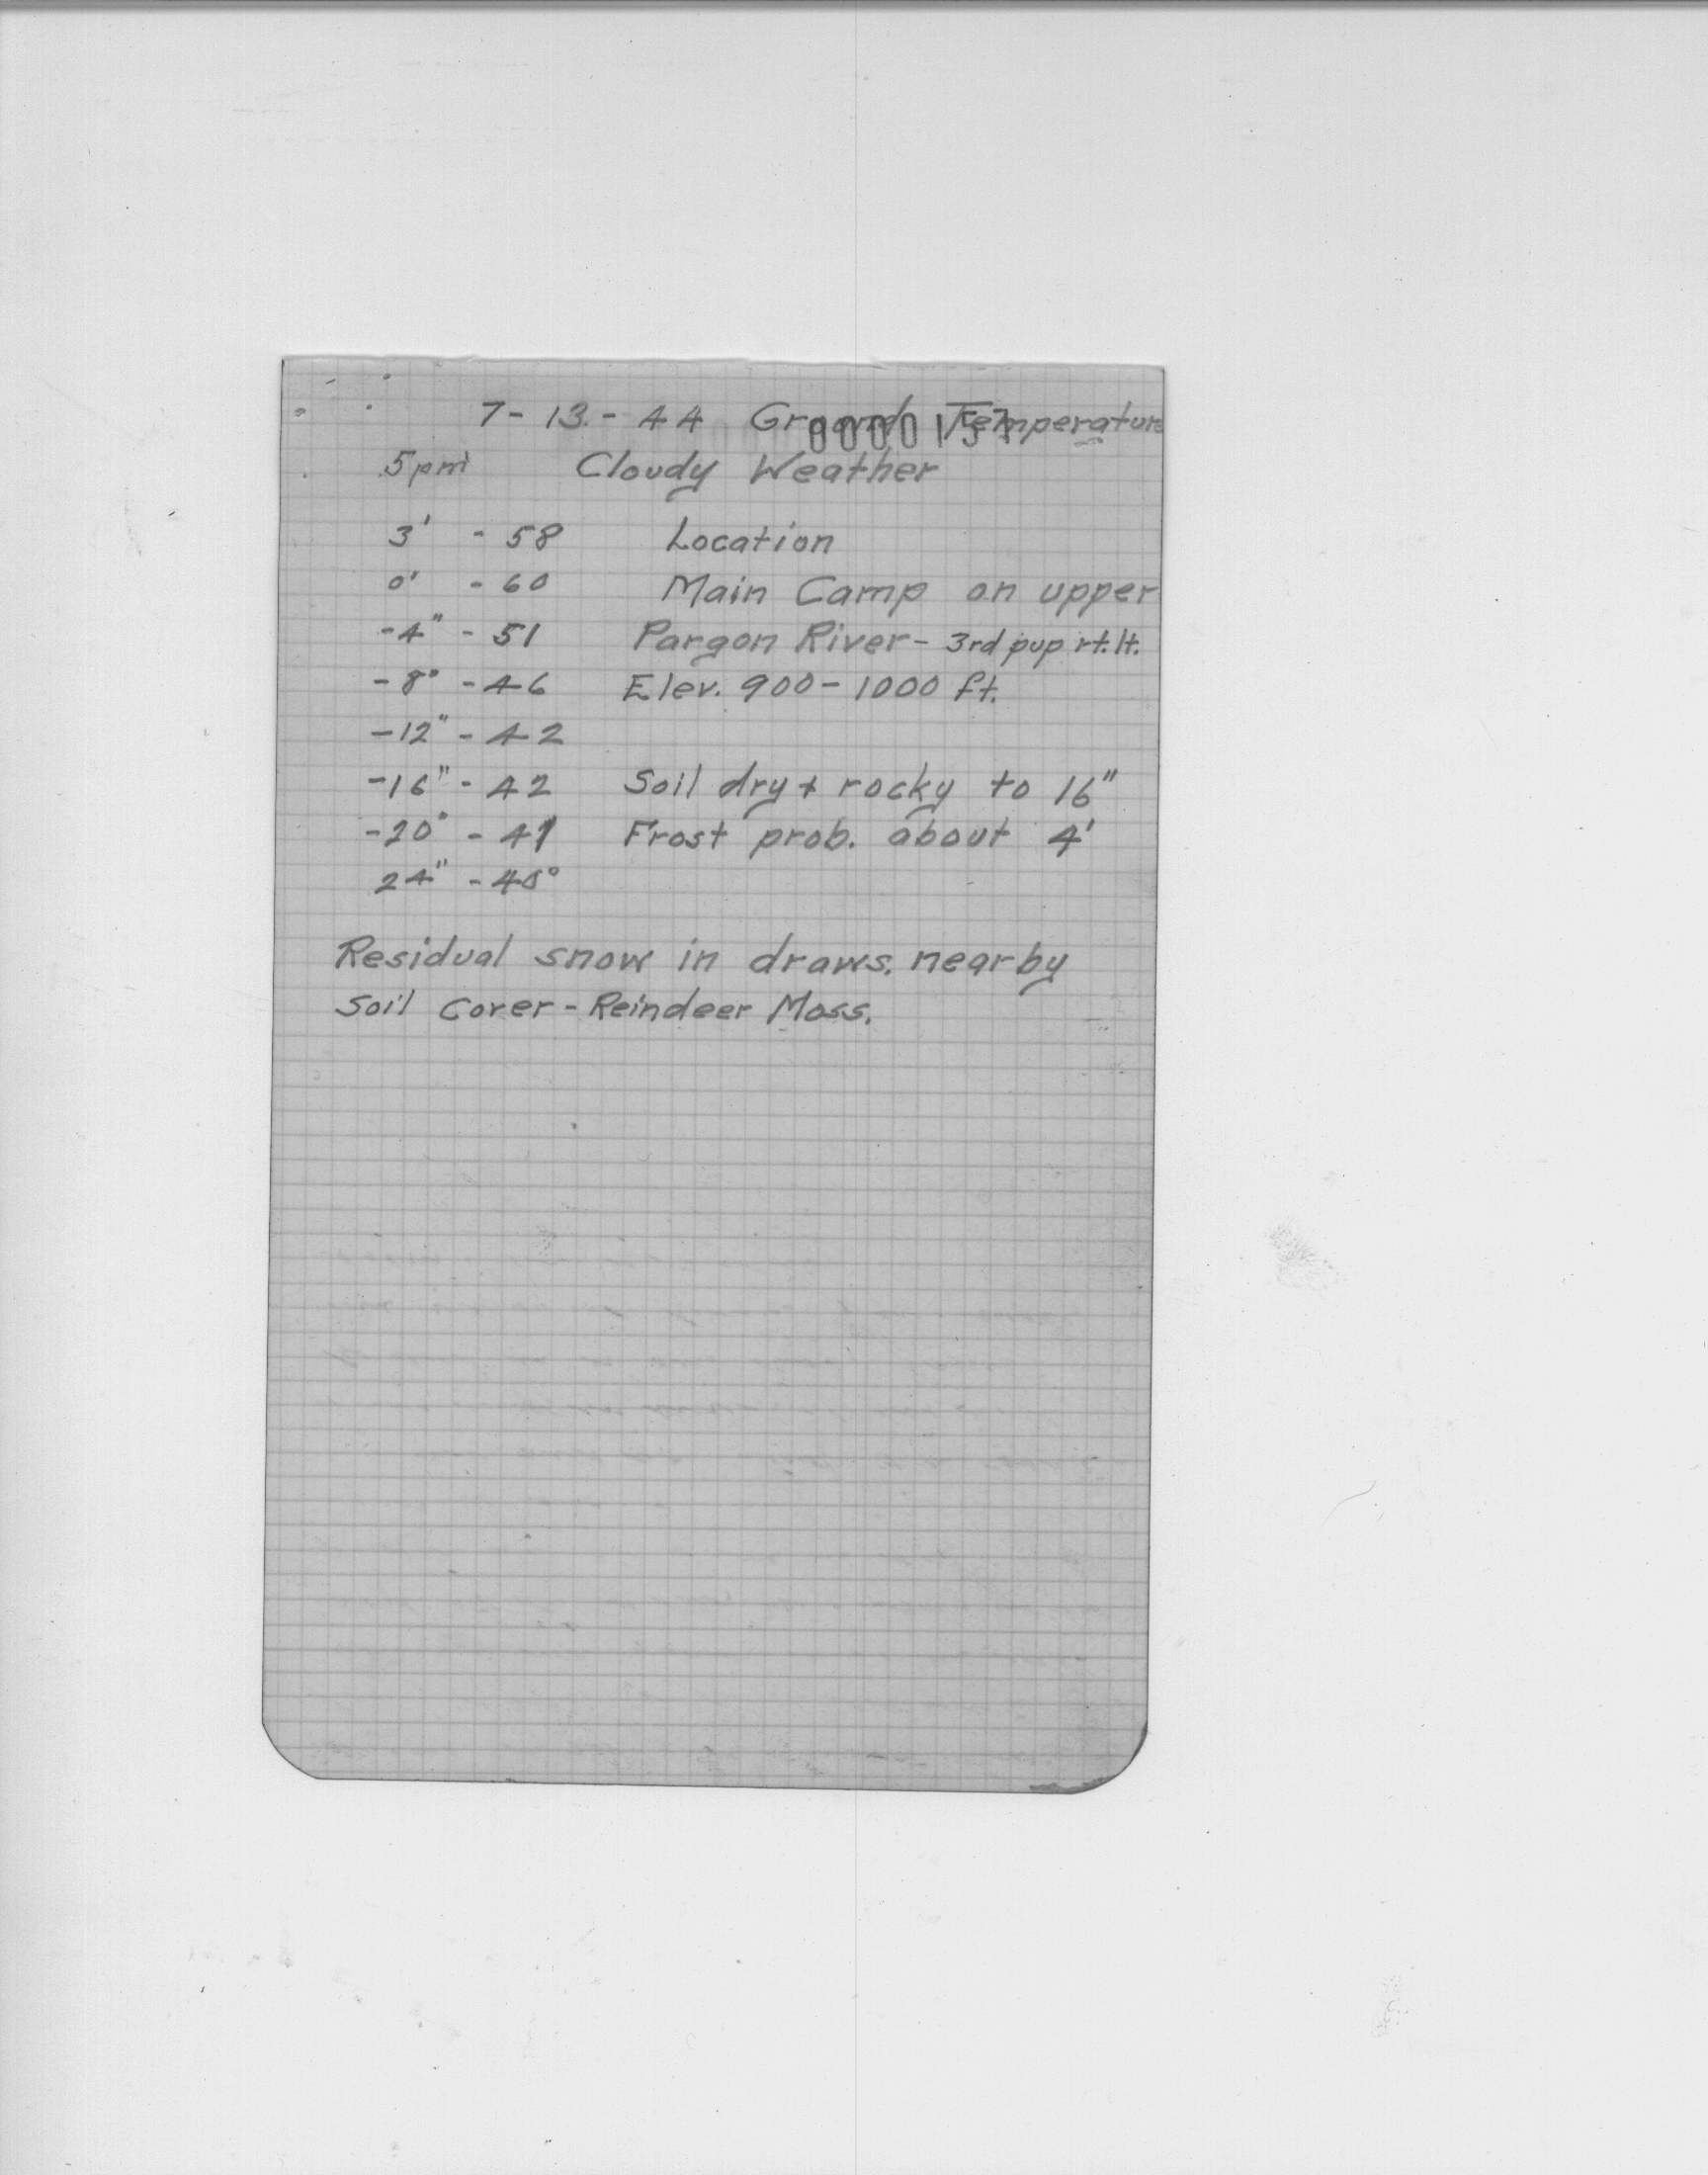 7-13-44 Ground Temperature
0000157
5pm Cloudy Weather
3' - 58 Location
0' - 60 Main Camp on upper
-4" - 51 Pargon River - 3rd pup rt. lt.
-8" - 46 Elev. 900-1000 ft.
-12" - 42
-16" - 42 Soil dry + rocky to 16"
-20" - 41 Frost prob. about 4'
24" - 40°
Residual snow in draws. nearby
Soil Cover - Reindeer Moss.